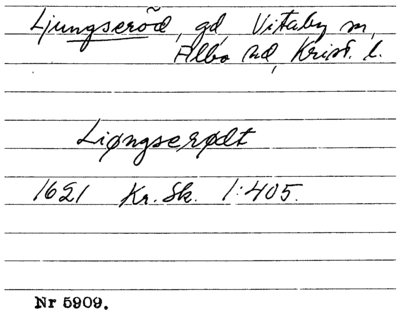 Ljungseröd, gd, Vitaby sn,
Albo hd, Krist. l.
Liøngserødt
1621 Kr. Sk. 1:405.
Nr 5909.